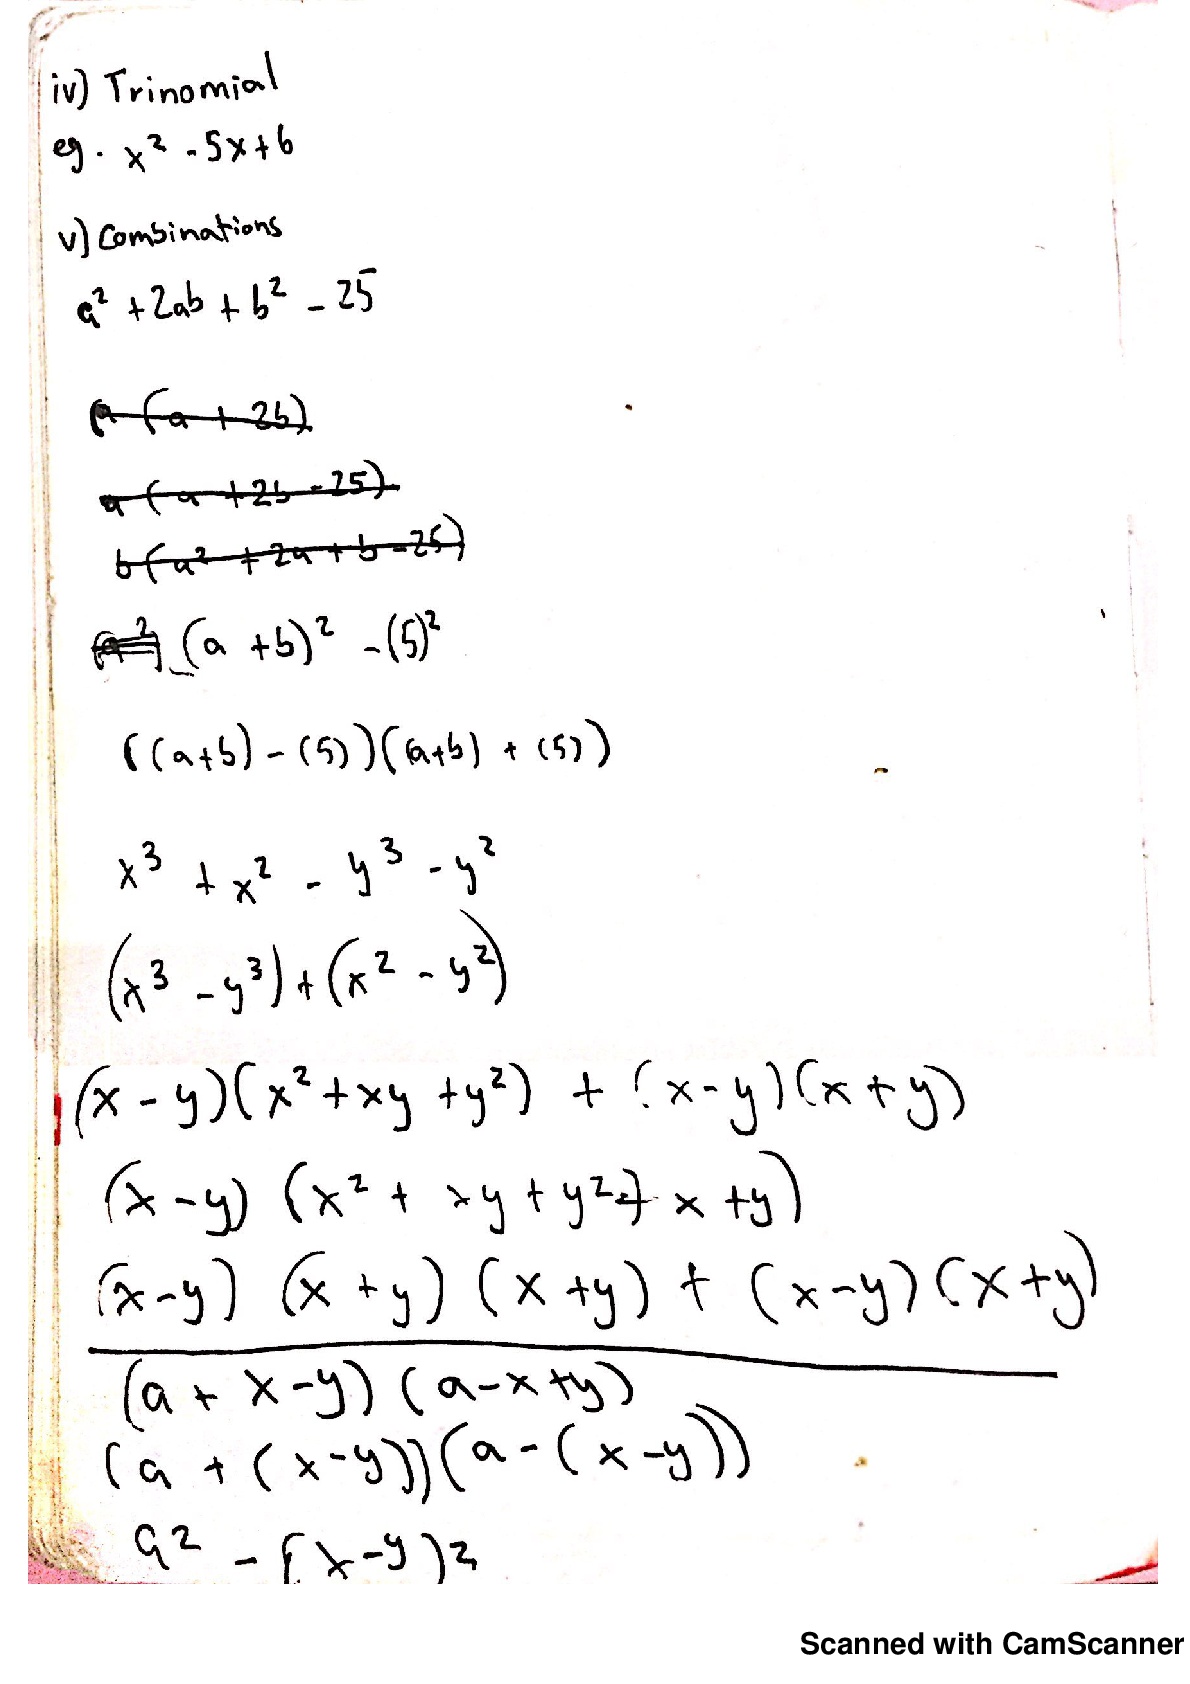 iv) Trinomial
eg. x² - 5x + 6
v) Combinations
a² + 2ab + b² - 25
a (a + 2b)
a (a + 2b - 25)
b (a² + 2a + b - 25)
(a + b)² - (5)²
((a+b) - (5))(a+b) + (5))
x³ + x² - y³ - y²
(x³ - y³) + (x² - y²)
(x - y)(x² + xy + y²) + (x - y)(x + y)
(x - y) (x² + xy + y² + x + y)
(x - y) (x + y) (x + y) + (x - y) (x + y)
(a + x - y) (a - x + y)
(a + (x - y))(a - (x - y))
a² - (x - y)²
Scanned with CamScanner